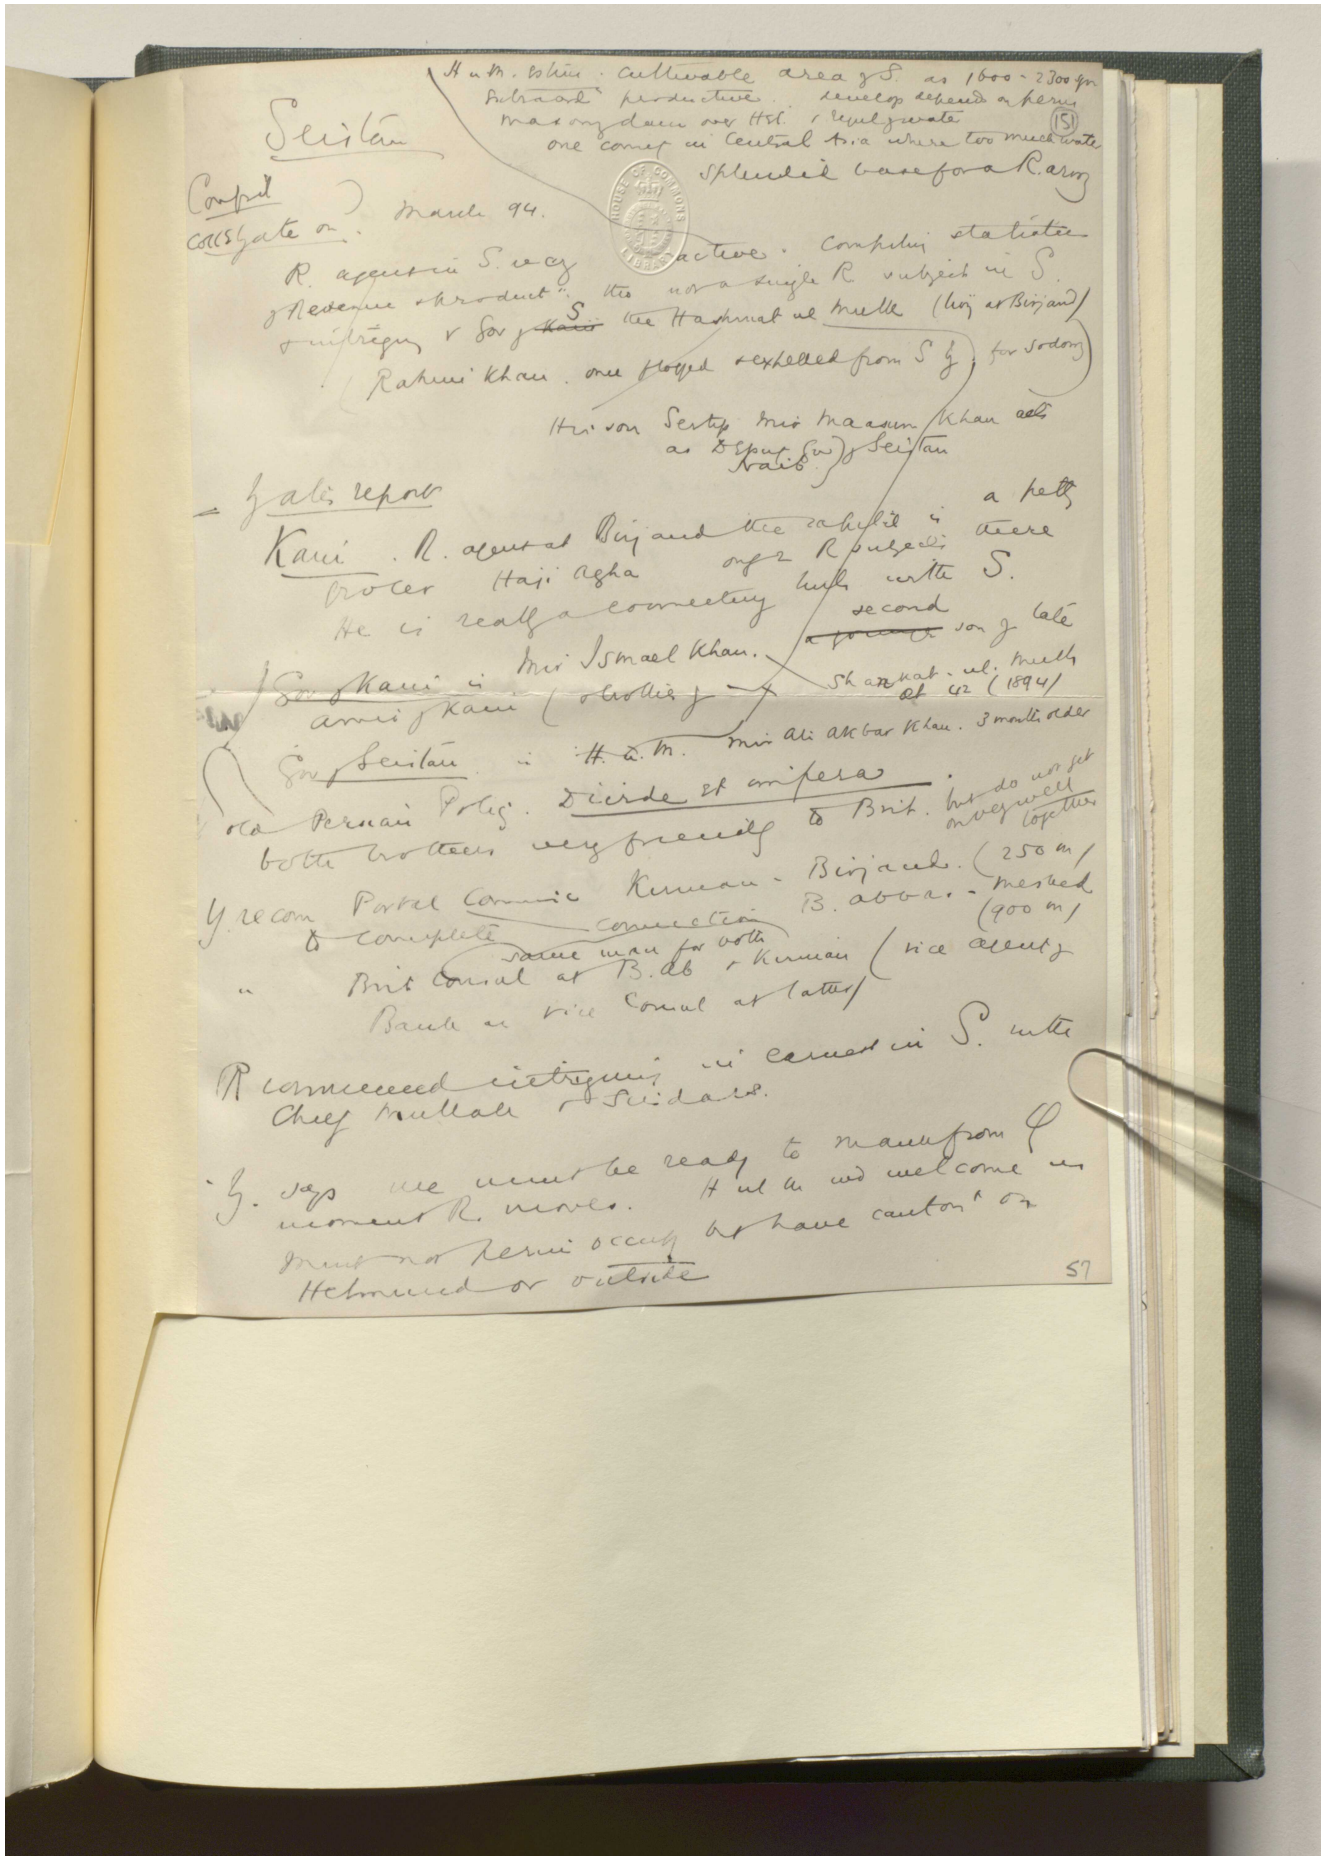 H u M. estim. cultivable area of S. as 1600 - 2300 
productive. develop depends on 
masonry dam over Hel. & regul of water
(151)
one country in Central Asia where too much water
splendid base for a R. army
Seistan
HOUSE OF COMMONS LIBRARY
Confid
Col CS Yate on. March 94.
R. agent in S. very active. Compiling statistics
of Revenue & product tho not a single R subject in S.
& intriguing & Gov of Kain S the Hashmat ul Mulk (living at Birjand)
(Rahim Khan. once flogged & expelled from S by for sodomy)
His son Sertip Mir Maasum Khan acts
as Deputy Gov of Seistan
Naib
Yate's report
Kain. R. agent at Birjand the capital is a petty
trader Haji Agha only 2 R subjects there
He is really a connecting link with S.
Gov of Kain is Mir Ismael Khan. a younger second son of late
Amir of Kain (brother of Shaukat-ul-Mulk
æt 42 (1894)
Gov of Seistan is H. u. M. Mir Ali Akbar Khan. 3 months older
old Persian Policy. Divide et impera.
both brothers very friendly to Brit. but do not get
on very well
together
Y. recom Postal Commn Kerman - Birjand. (250 m)
to complete connection B. Abbas - Meshed
(900 m)
same man for both
" Brit Consul at B. Ab & Kerman (vice agent of
Bank as vice Consul at latter)
R commenced intriguing in earnest in S. with
Chief Mullah & Sirdars.
Y. says we must be ready to march from Q
moment R. moves. H ul M wd welcome us
Must not perm occupy but have canton^t on
Helmund or outside
57